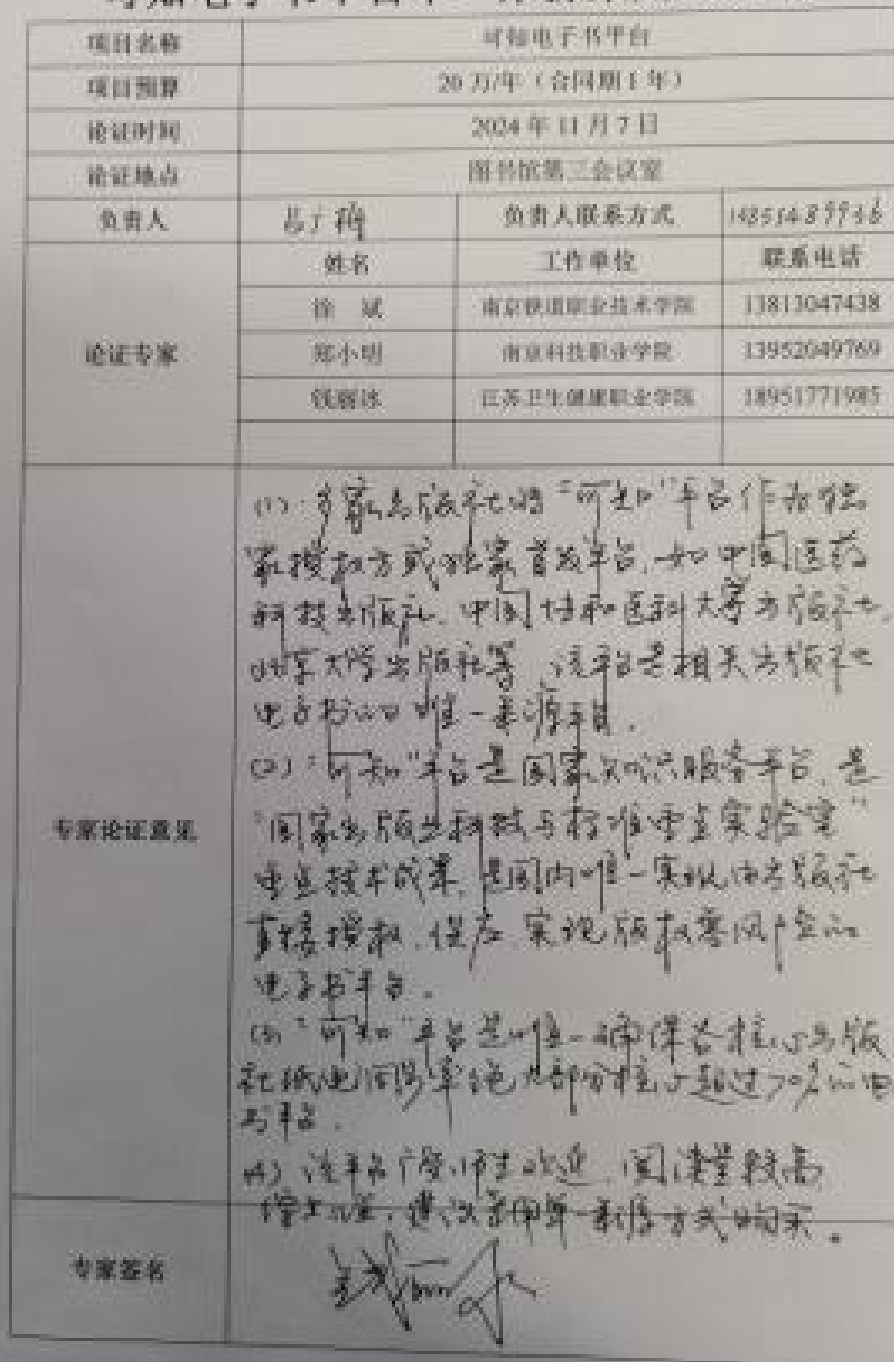 项目名称 可知电子书平台
项目预算 20万/年（合同期1年）
论证时间 2024年11月7日
论证地点 图书馆第三会议室
负责人 负责人联系方式
论证专家 姓名 工作单位 联系电话
徐斌 南京铁道职业技术学院 13813047438
郑小明 南京科技职业学院 13952049769
江苏卫生健康职业学院 18951771985
专家论证意见
(1) 多家出版社将“可知”平台作为独
家授权方或独家首发平台,如中国医药
科技出版社、中国协和医科大学出版社、
北京大学出版社等,该平台是相关出版社
电子书的唯一来源平台.
(2) “可知”平台是国家知识服务平台,是
“国家出版业科技与标准重点实验室”
重点技术成果,是国内唯一实现由出版社
直接授权、供应、实现版权零风险的
电子书平台.
(3) “可知”平台是唯一确保各核心出版
社纸电同步率绝大部分 超过70%的电
书平台.
(4) 该平台广受师生欢迎,阅读量较高
建议采用单一来源方式购买。
专家签名